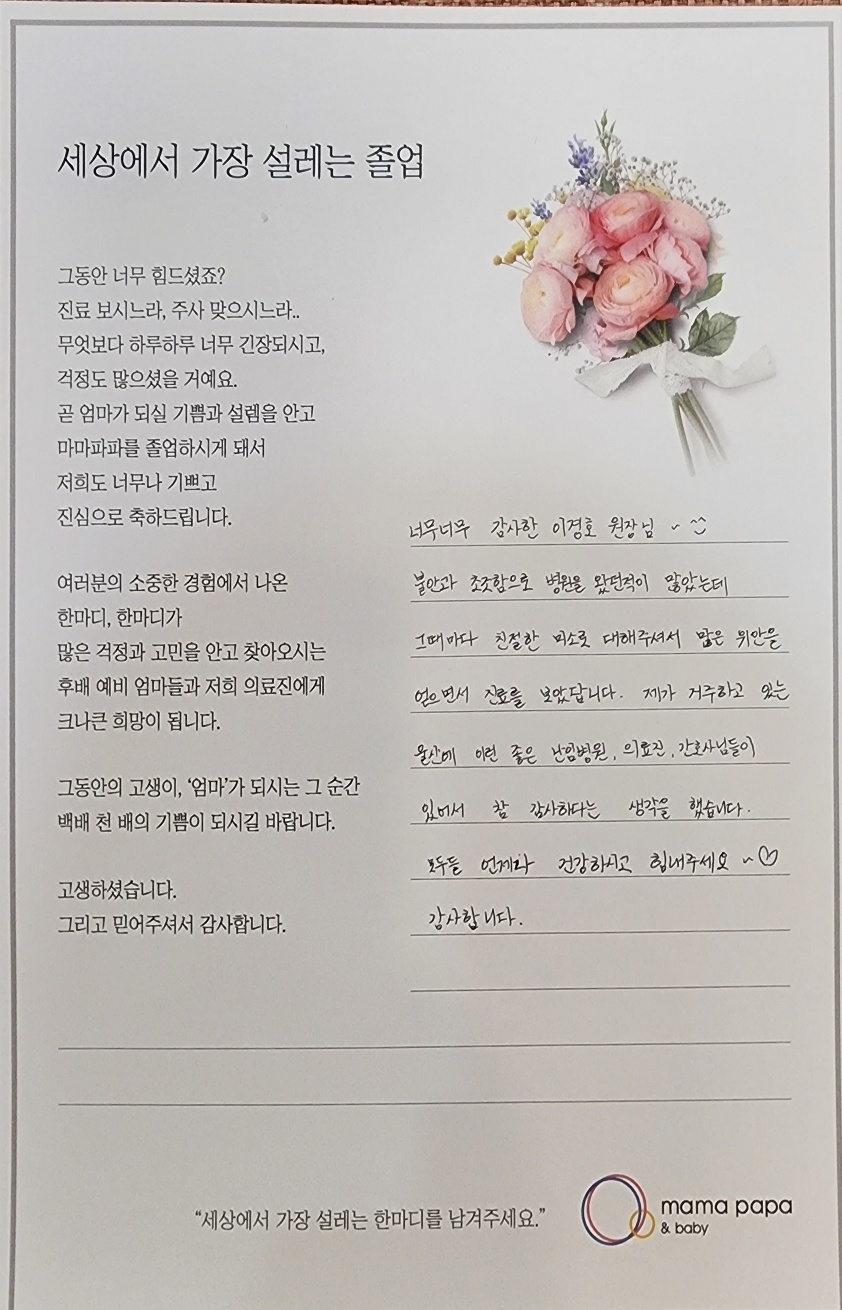 세상에서 가장 설레는 졸업
그동안 너무 힘드셨죠?
진료 보시느라, 주사 맞으시느라..
무엇보다 하루하루 너무 긴장되시고,
걱정도 많으셨을 거예요.
곧 엄마가 되실 기쁨과 설렘을 안고
마마파파를 졸업하시게 돼서
저희도 너무나 기쁘고
진심으로 축하드립니다.
여러분의 소중한 경험에서 나온
한마디, 한마디가
많은 걱정과 고민을 안고 찾아오시는
후배 예비 엄마들과 저희 의료진에게
크나큰 희망이 됩니다.
그동안의 고생이, ‘엄마’가 되시는 그 순간
백배 천 배의 기쁨이 되시길 바랍니다.
고생하셨습니다.
그리고 믿어주셔서 감사합니다.
너무너무 감사한 이경호 원장님 ~ ^^
불안과 초조함으로 병원을 왔던적이 많았는데
그때마다 친절한 미소로 대해주셔서 많은 위안을
얻으면서 진료를 보았답니다. 제가 거주하고 있는
울산에 이런 좋은 난임병원, 의료진, 간호사님들이
있어서 참 감사하다는 생각을 했습니다.
모두들 언제나 건강하시고 힘내주세요 ~♡
감사합니다.
“세상에서 가장 설레는 한마디를 남겨주세요.”
mama papa
& baby